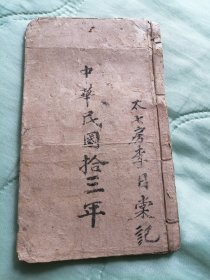 太七房李日棠記
中華民國拾三年